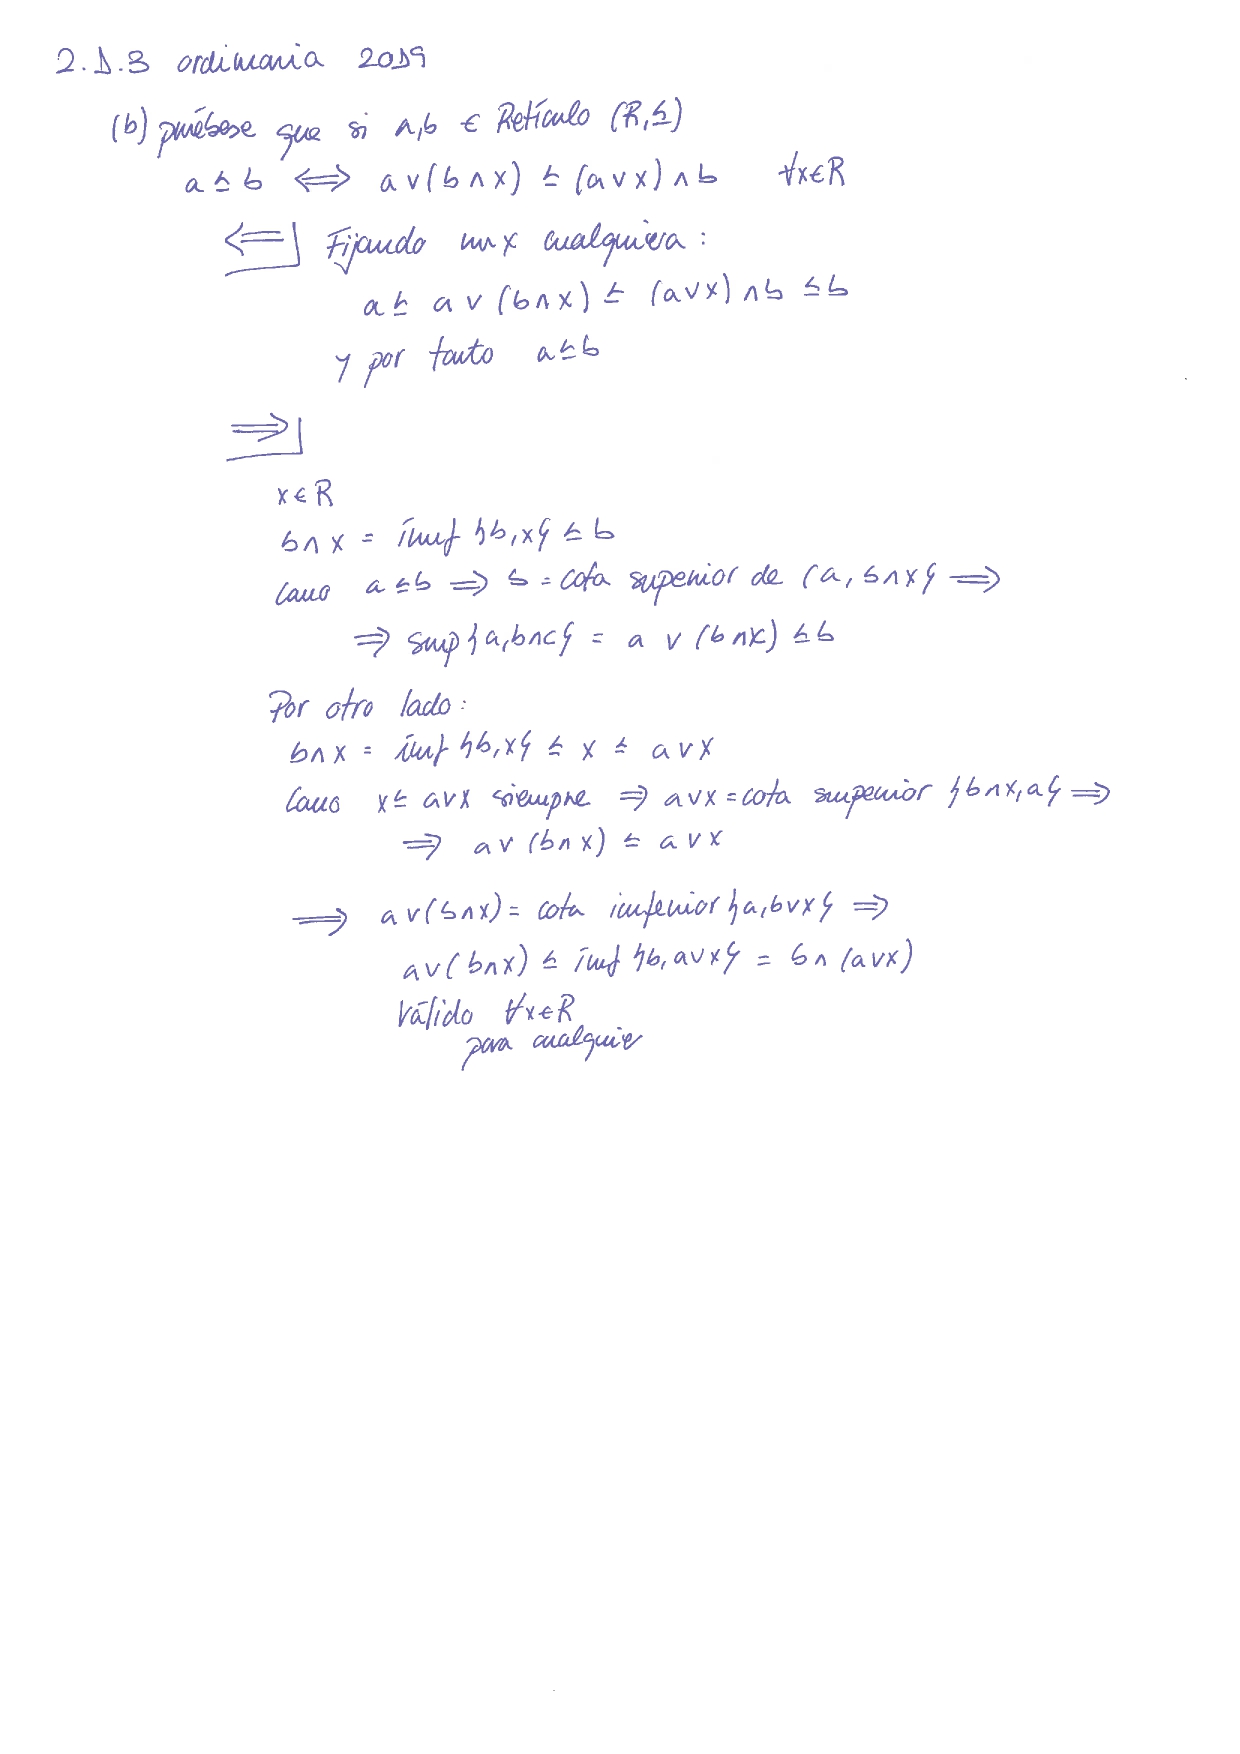 2.1.3 ordinaria 2019
(b) pruébese que si a,b ∈ Retículo (R,≤)
a ≤ b ⟺ a ∨ (b ∧ x) ≤ (a ∨ x) ∧ b ∀x∈R
⟸ Fijando un x cualquiera:
a ≤ a ∨ (b ∧ x) ≤ (a ∨ x) ∧ b ≤ b
y por tanto a ≤ b
⟹
x ∈ R
b ∧ x = ínf {b,x} ≤ b
Como a ≤ b ⟹ b = cota superior de {a, b∧x} ⟹
⟹ sup {a, b∧c} = a ∨ (b ∧ x) ≤ b
Por otro lado:
b ∧ x = ínf {b,x} ≤ x ≤ a ∨ x
Como x ≤ a∨x siempre ⟹ a∨x = cota superior {b∧x, a} ⟹
⟹ a ∨ (b ∧ x) ≤ a ∨ x
⟹ a ∨ (b∧x) = cota inferior {a, b∨x} ⟹
a ∨ (b∧x) ≤ ínf {b, a∨x} = b ∧ (a∨x)
Válido ∀x∈R
para cualquier